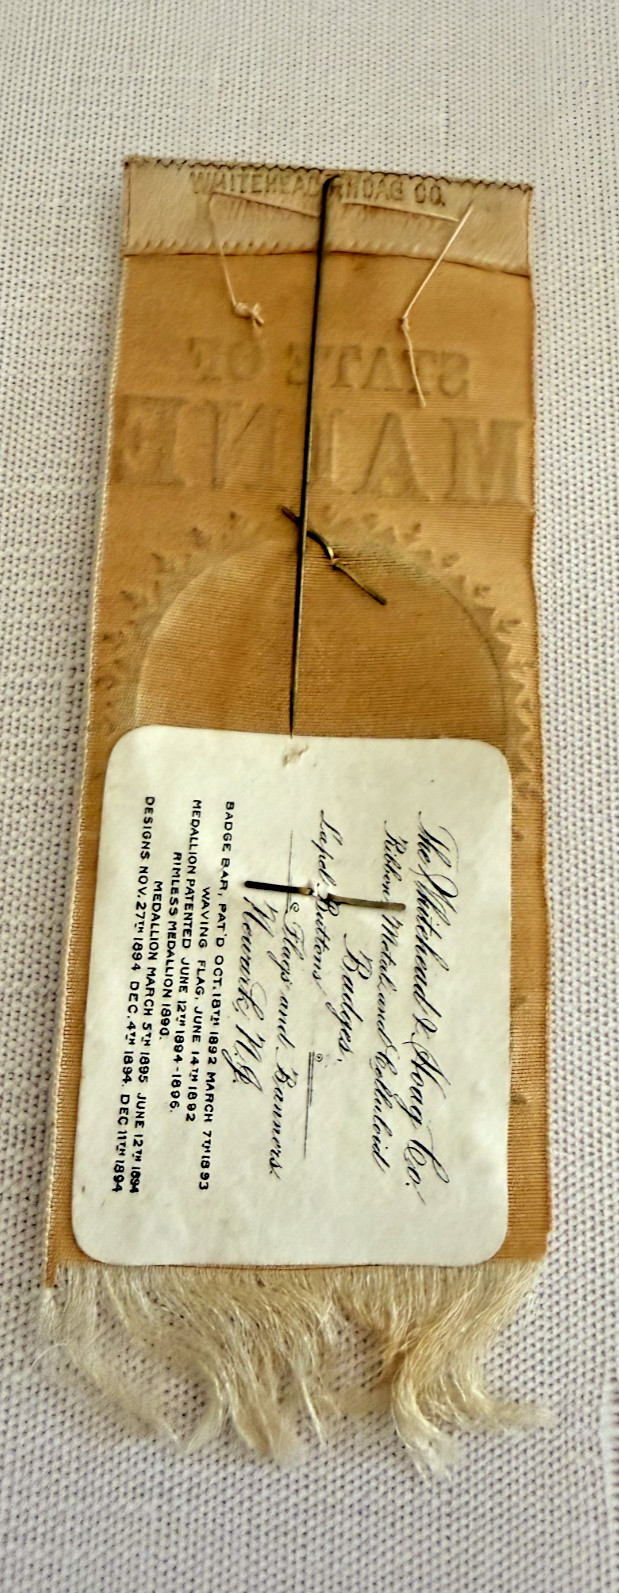 WHITEHEAD & HOAG CO.
STATE OF
MAINE
The Whitehead & Hoag Co.
Ribbon, Metal and Celluloid
Badges,
Lapel Buttons,
Flags and Banners.
Newark, N.J.
BADGE BAR, PAT'D OCT. 18TH 1892 MARCH 7TH 1893
WAVING FLAG, JUNE 14TH 1892
MEDALLION PATENTED JUNE 12TH 1894-1896.
RIMLESS MEDALLION 1890.
MEDALLION MARCH 5TH 1895 JUNE 12TH 1894
DESIGNS NOV. 27TH 1894 DEC. 4TH 1894. DEC 11TH 1894